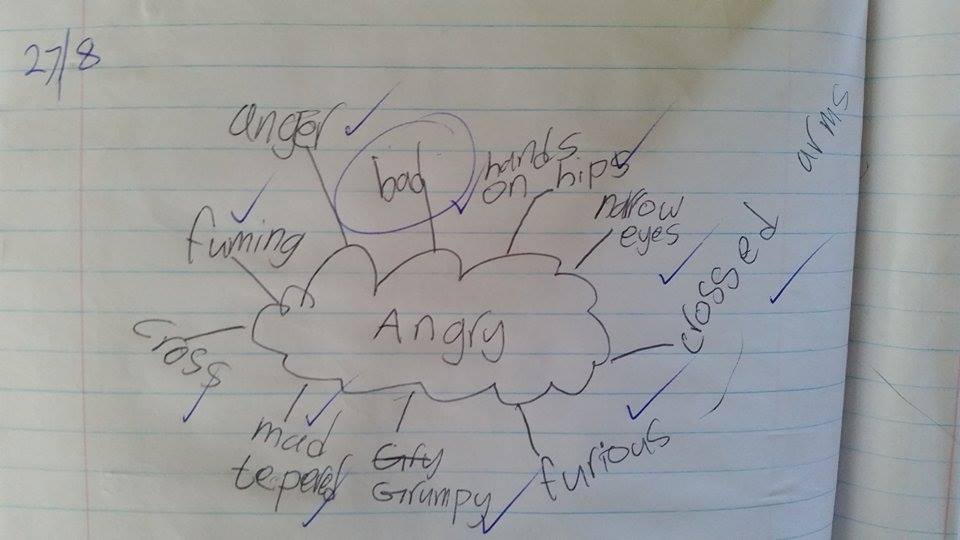 27/8
anger
bad
hands
on hips
narrow
eyes
crossed arms
furious
Grumpy
mad
tepered
cross
fuming
Angry